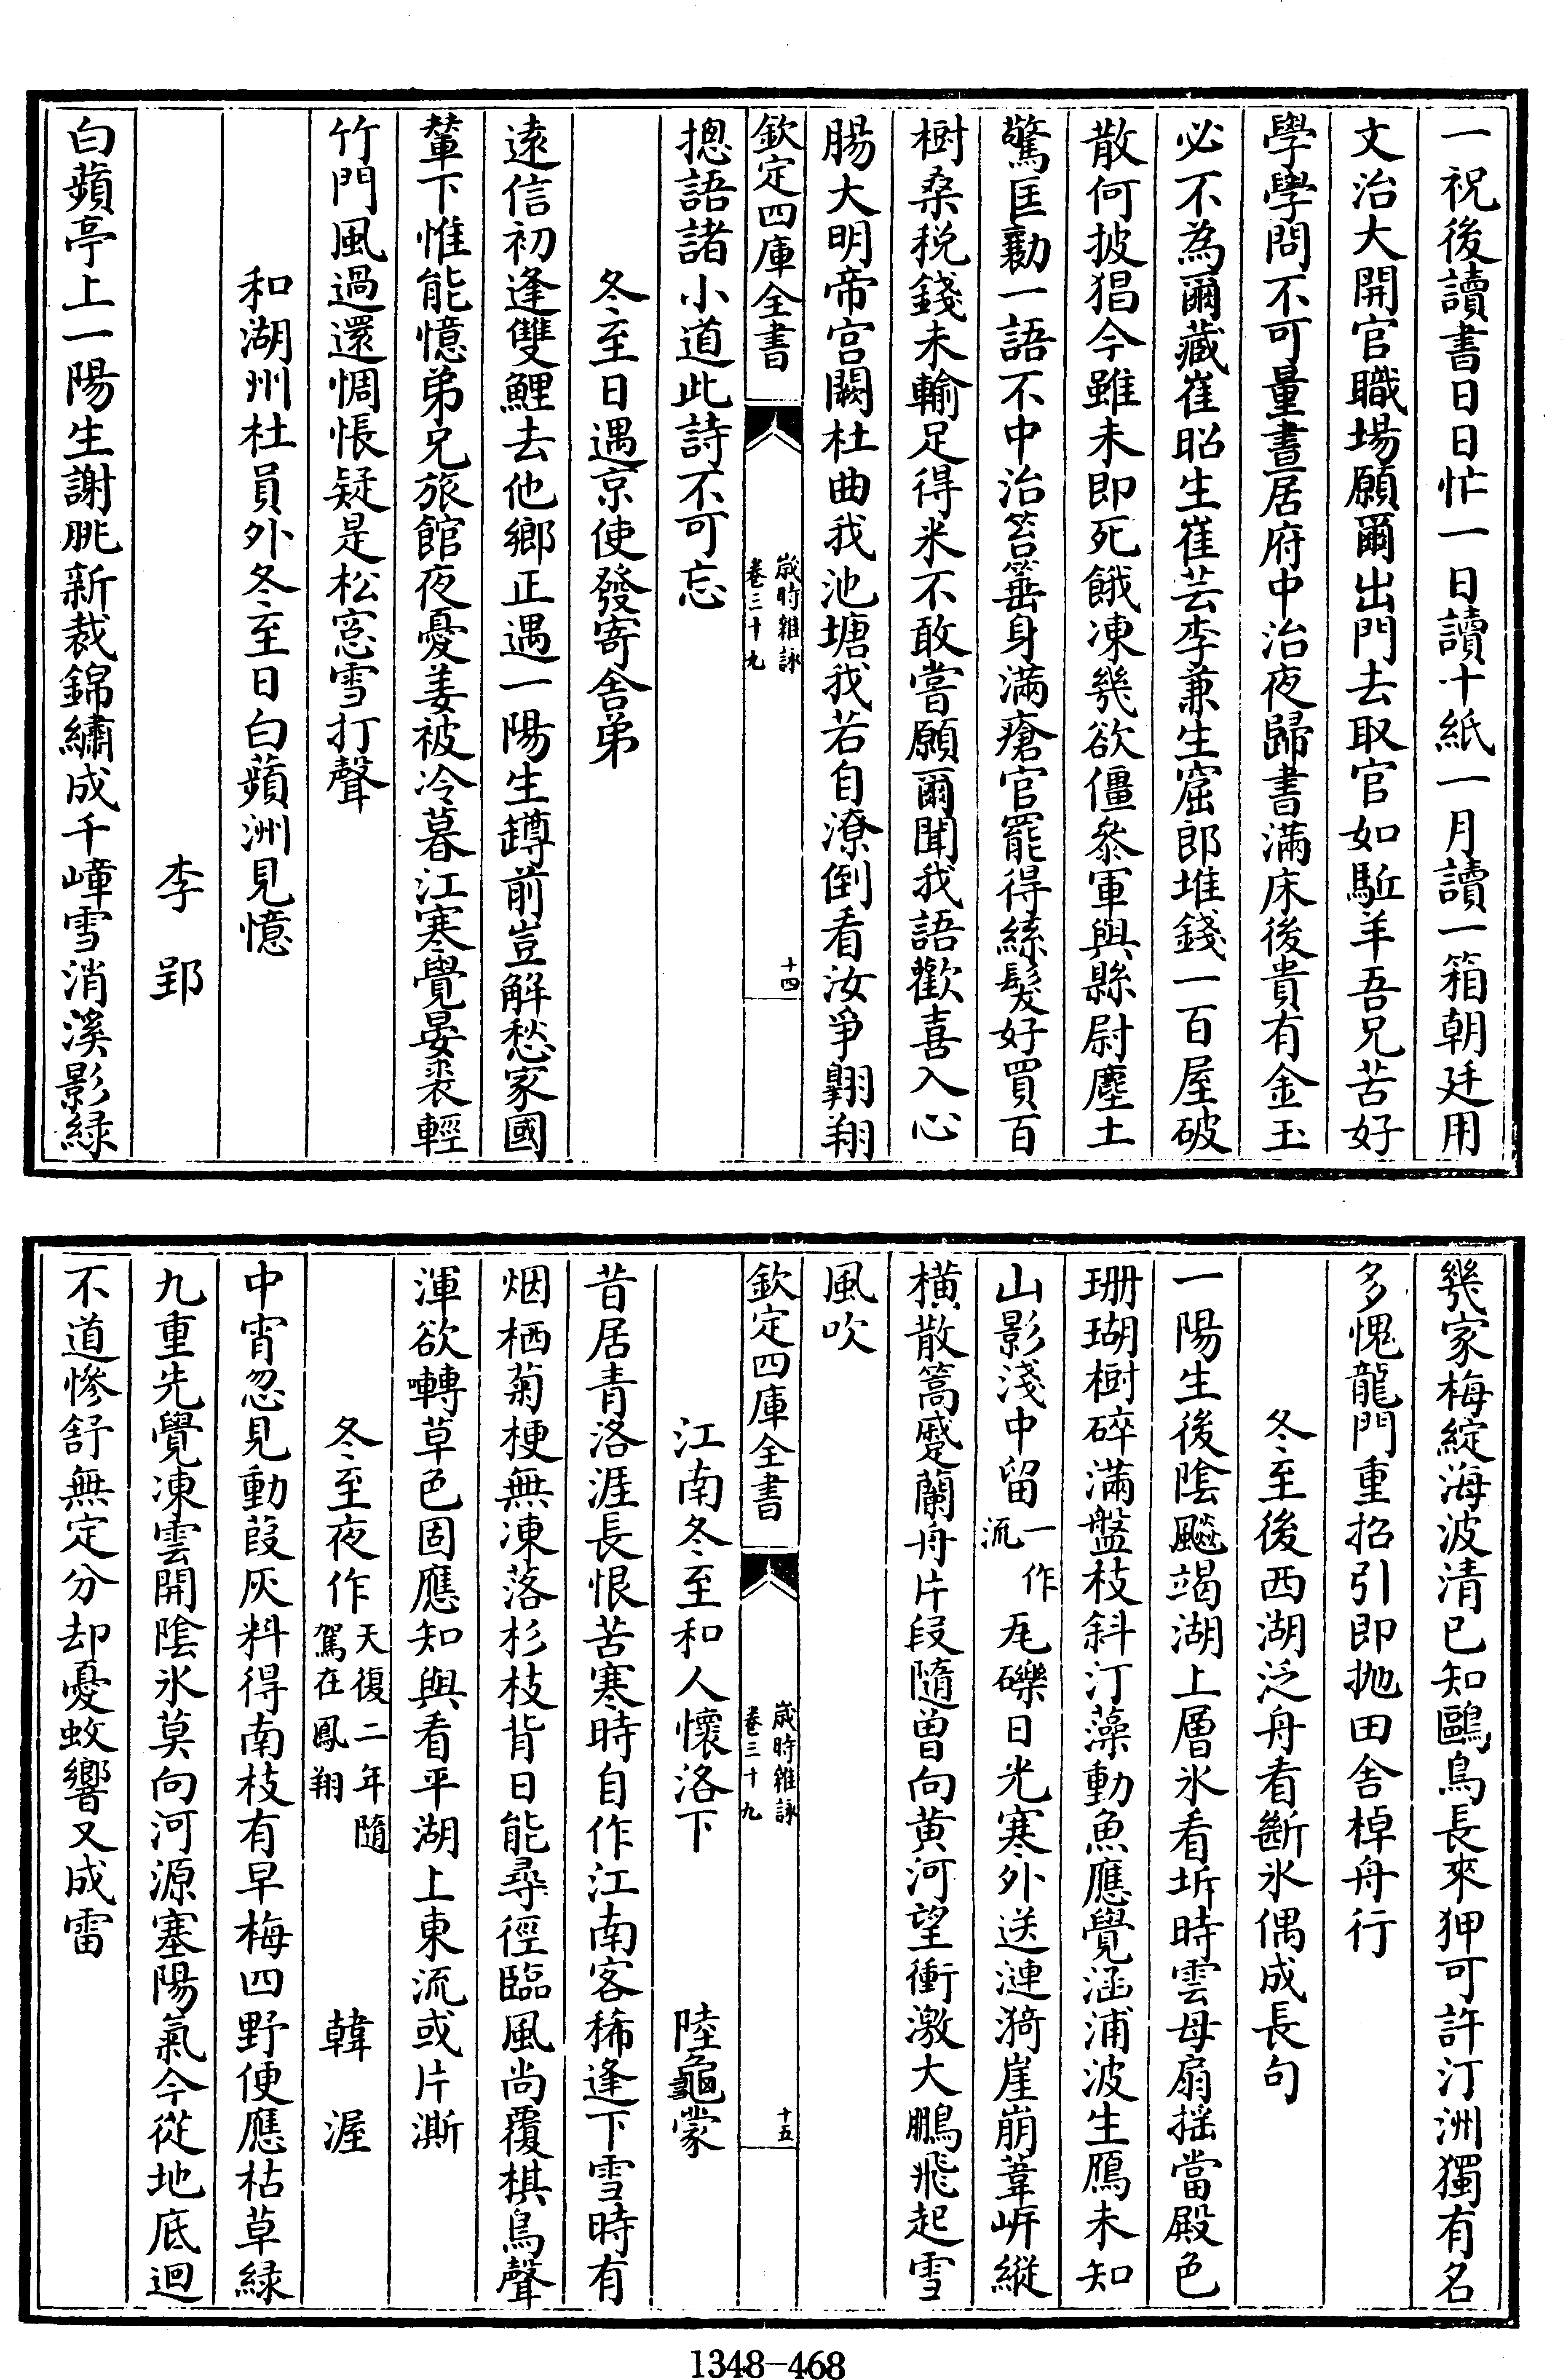 一祝後讀書日日忙一日讀十紙一月讀一箱朝廷用
文治大開官職場願爾出門去取官如駈羊吾兄苦好
學學問不可量晝居府中治夜歸書滿床後貴有金玉
必不為爾藏崔昭生崔芸李兼生窟郎堆錢一百屋破
散何披猖今雖未即死餓凍幾欲僵參軍與縣尉塵土
驚匡勷一語不中治笞箠身滿瘡官罷得絲髮好買百
樹桑税錢未輸足得米不敢嘗願爾聞我語歡喜入心
腸大明帝宫闕杜曲我池塘我若自潦倒看汝爭翺翔
欽定四庫全書
歲時雜詠
卷三十九
十四
摠語諸小道此詩不可忘
冬至日遇京使發寄舍弟
遠信初逢雙鯉去他鄉正遇一陽生罇前豈解愁家國
輦下惟能憶弟兄旅館夜憂姜被冷暮江寒覺晏裘輕
竹門風過還惆悵疑是松窓雪打聲
和湖州杜員外冬至日白蘋洲見憶
李郢
白蘋亭上一陽生謝朓新裁錦繡成千嶂雪消溪影緑
幾家梅綻海波清已知鷗鳥長來狎可許汀洲獨有名
多愧龍門重招引即抛田舍棹舟行
冬至後西湖泛舟看斷氷偶成長句
一陽生後陰飈竭湖上層氷看坼時雲母扇摇當殿色
珊瑚樹碎滿盤枝斜汀藻動魚應覺涵浦波生鴈未知
山影淺中留一作流瓦礫日光寒外送漣漪崖崩葦岍縱
横散篙蹙蘭舟片段隨曽向黄河望衝激大鵬飛起雪
風吹
欽定四庫全書
歲時雜詠
卷三十九
十五
江南冬至和人懷洛下 陸龜蒙
昔居青洛涯長恨苦寒時自作江南客稀逢下雪時有
烟栖菊梗無凍落杉枝背日能尋徑臨風尚覆棋鳥聲
渾欲囀草色固應知與看平湖上東流或片澌
冬至夜作天復二年隨駕在鳳翔 韓渥
中宵忽見動葭灰料得南枝有早梅四野便應枯草緑
九重先覺凍雲開陰氷莫向河源塞陽氣今從地底迴
不道慘舒無定分却憂蚊響又成雷
1348-468